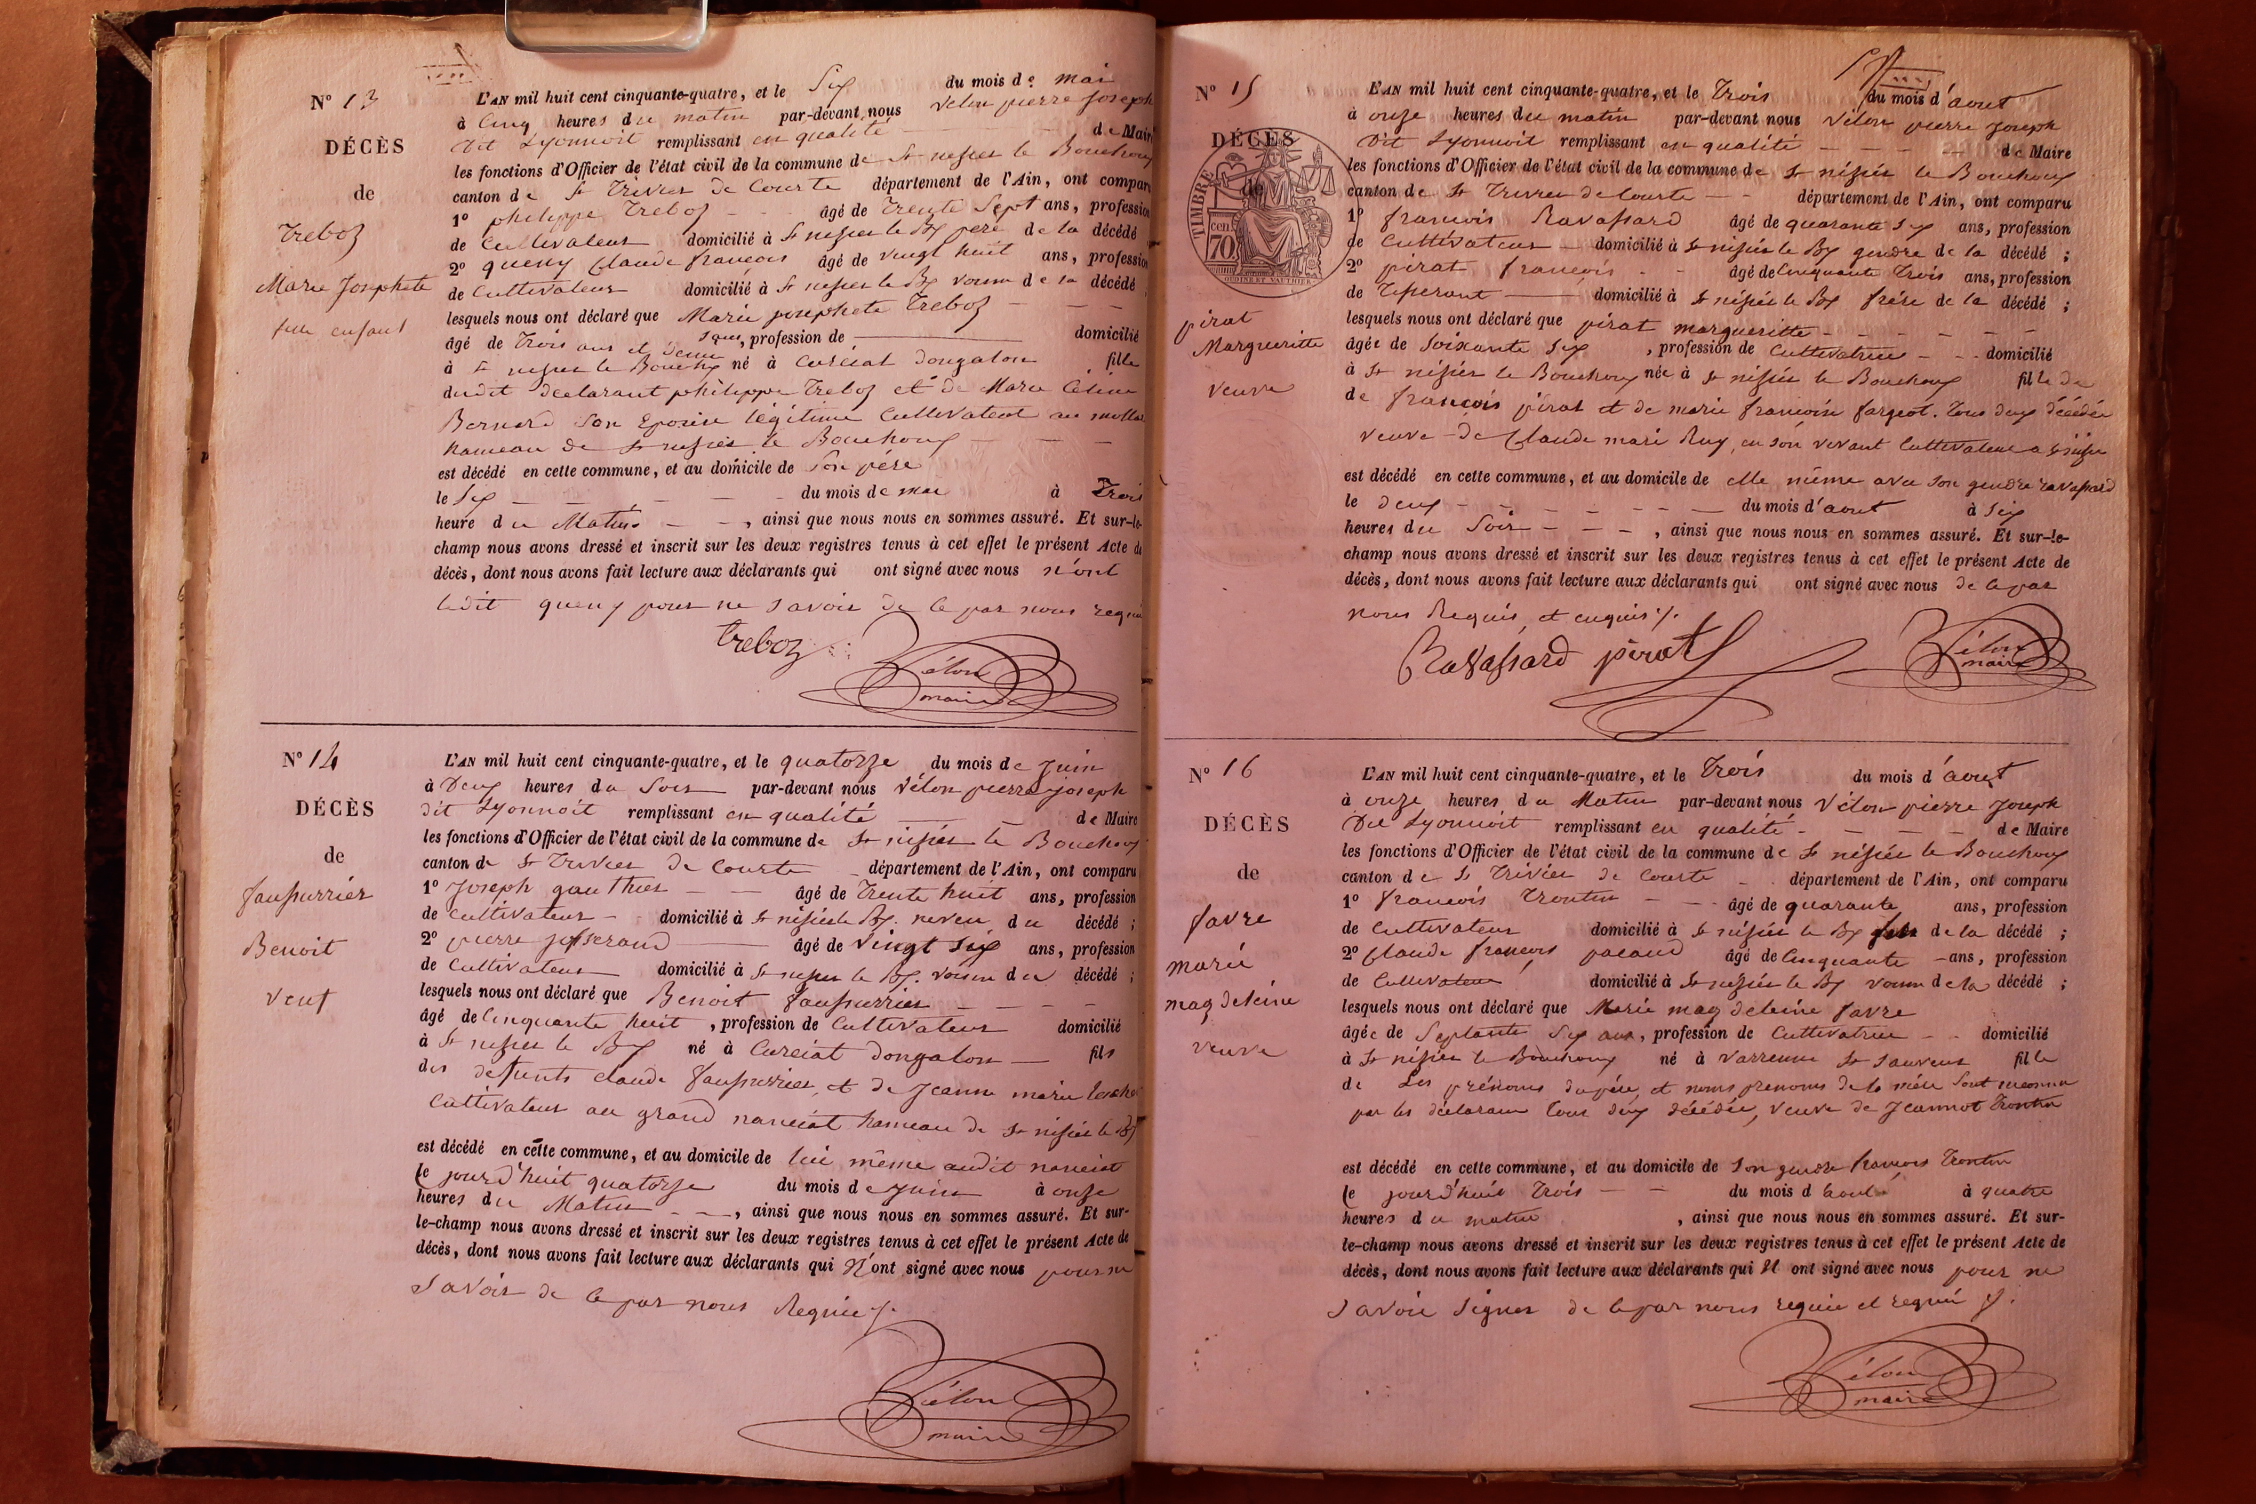 N° 13
DÉCÈS
de
Treboz
Marie Josephete
fille enfant
L'AN mil huit cent cinquante-quatre, et le Six du mois de mai
à Cinq heures du matin par-devant nous Vélon pierre Joseph
dit Lyonnoit remplissant en qualité de Maire
les fonctions d'Officier de l'état civil de la commune de St nisier le Bouchoux
canton de St Trivier de Courte département de l'Ain, ont comparu
1° philippe Treboz âgé de Trente Sept ans, profession
de Cultivateur domicilié à St nisier le Bx père de la décédé
2° queny Claude francois âgé de vingt huit ans, profession
de Cultivateur domicilié à St nisier le Bx voisin de la décédé
lesquels nous ont déclaré que Marie josephete Treboz
âgé de Trois ans et Demi ans, profession de domicilié
à St nisier le Bouchx né à Curciat dongalon fille
dudit declarant philippe Treboz et de Marie
Bernard Son Epouse légitime Cultivateur au
hameau de St nisier le Bouchoux
est décédé en cette commune, et au domicile de Son père
le Six du mois de mai à Trois
heure du Matin, ainsi que nous nous en sommes assuré. Et sur-le-
champ nous avons dressé et inscrit sur les deux registres tenus à cet effet le présent Acte de
décès, dont nous avons fait lecture aux déclarants qui ont signé avec nous n'ont
ledit queny pour ne savoir de ce par nous requis
treboz
Vélon
maire
N° 14
DÉCÈS
de
faussurrier
Benoit
veuf
L'AN mil huit cent cinquante-quatre, et le quatorze du mois de Juin
à Deux heures du Soir par-devant nous Vélon pierre joseph
dit Lyonnoit remplissant en qualité de Maire
les fonctions d'Officier de l'état civil de la commune de St nisier le Bouchoux
canton de St Trivier de Courte département de l'Ain, ont comparu
1° Joseph gauthier âgé de Trente huit ans, profession
de cultivateur domicilié à St nisier le Bx. neveu du décédé ;
2° pierre josserand âgé de vingt six ans, profession
de Cultivateur domicilié à St nisier le Bx. voisin du décédé ;
lesquels nous ont déclaré que Benoit faussurrier
âgé de Cinquante huit, profession de Cultivateur domicilié
à St nisier le Bx né à Curciat dongalon fils
des defunts claude faussurrier, et de Jeanne marie
Cultivateur au grand nanciat hameau de St nisier le Bx
est décédé en cette commune, et au domicile de lui même audit nanciat
le jourd'huit quatorze du mois de juin à onze
heures du Matin, ainsi que nous nous en sommes assuré. Et sur-
le-champ nous avons dressé et inscrit sur les deux registres tenus à cet effet le présent Acte de
décès, dont nous avons fait lecture aux déclarants qui N'ont signé avec nous pour ne
savoir de ce par nous Requis
Vélon
maire
N° 15
DÉCÈS
de
TIMBRE
70 cen
pirat
Margueritte
veuve
L'AN mil huit cent cinquante-quatre, et le Trois du mois d'aout
à onze heures du matin par-devant nous Vélon pierre joseph
Dit Lyonnoit remplissant en qualité de Maire
les fonctions d'Officier de l'état civil de la commune de St nisier le Bouchoux
canton de St Trivier de Courte département de l'Ain, ont comparu
1° francois Ravassard âgé de quarante six ans, profession
de Cultivateur domicilié à St nisier le Bx gendre de la décédé ;
2° pirat francois âgé de Cinquante Trois ans, profession
de Tisserant domicilié à St nisier le Bx frère de la décédé ;
lesquels nous ont déclaré que pirat margueritte
âgée de Soixante six, profession de Cultivatrice domicilié
à St nisier le Bouchoux née à St nisier le Bouchoux fille de
de francois pirat et de marie francoise fargeot. Tous deux décédés
veuve de Claude marie Ruy, en son vivant Cultivateur a St nisier
est décédé en cette commune, et au domicile de elle même avec son gendre ravassard
le deux du mois d'aout à six
heures du Soir, ainsi que nous nous en sommes assuré. Et sur-le-
champ nous avons dressé et inscrit sur les deux registres tenus à cet effet le présent Acte de
décès, dont nous avons fait lecture aux déclarants qui ont signé avec nous de ce par
nous Requis, et enquis
Ravassard pirat
Vélon
maire
N° 16
DÉCÈS
de
favre
marie
magdeleine
veuve
L'AN mil huit cent cinquante-quatre, et le Trois du mois d'aout
à onze heures du Matin par-devant nous Vélon pierre Joseph
Dit Lyonnoit remplissant en qualité de Maire
les fonctions d'Officier de l'état civil de la commune de St nisier le Bouchoux
canton de St Trivier de Courte département de l'Ain, ont comparu
1° francois Trontin âgé de quarante ans, profession
de Cultivateur domicilié à St nisier le Bx de la décédé ;
2° Claude francois pacaud âgé de Cinquante ans, profession
de Cultivateur domicilié à St nisier le Bx voisin de la décédé ;
lesquels nous ont déclaré que Marie magdeleine favre
âgée de Septante Six ans, profession de Cultivatrice domicilié
à St nisier le Bouchoux né à varrenne St Sauveur fille
de Les prénoms du père, et noms prenoms de la mère Sont meconnu
par les déclarant tous deux décédés, veuve de Jeannot Trontin
est décédé en cette commune, et au domicile de Son gendre francois Trontin
le jourd'huit Trois du mois d'aout à quatre
heures du matin, ainsi que nous nous en sommes assuré. Et sur-
le-champ nous avons dressé et inscrit sur les deux registres tenus à cet effet le présent Acte de
décès, dont nous avons fait lecture aux déclarants qui N ont signé avec nous pour ne
savoir signer de ce par nous requis et requis
Vélon
maire